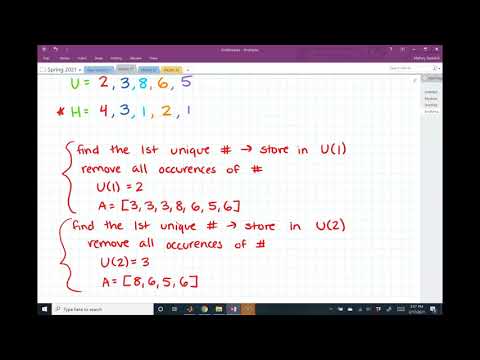 Spring 2021
U = 2, 3, 8, 6, 5
* H = 4, 3, 1, 2, 1
find the 1st unique # → store in U(1)
remove all occurences of #
U(1) = 2
A = [3, 3, 3, 8, 6, 5, 6]
find the 1st unique # → store in U(2)
remove all occurences of #
U(2) = 3
A = [8, 6, 5, 6]